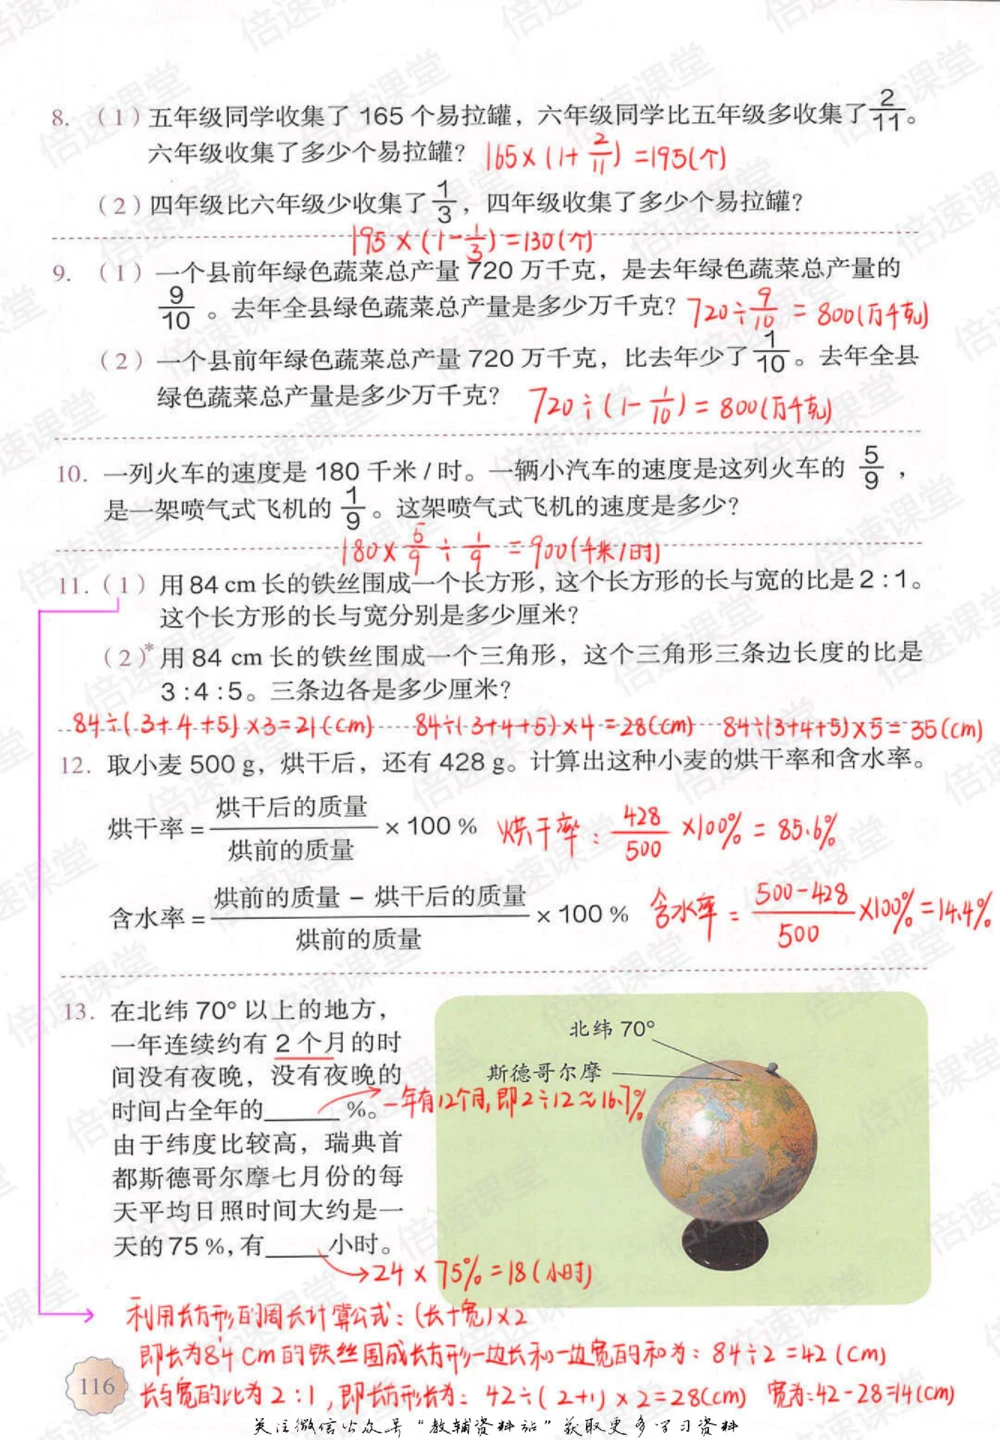 8. （1）五年级同学收集了 165 个易拉罐，六年级同学比五年级多收集了2/11。
六年级收集了多少个易拉罐？ 165×(1+2/11)=195(个)
（2）四年级比六年级少收集了1/3，四年级收集了多少个易拉罐？
195×(1-1/3)=130(个)
9. （1）一个县前年绿色蔬菜总产量 720 万千克，是去年绿色蔬菜总产量的
9/10。去年全县绿色蔬菜总产量是多少万千克？ 720÷9/10=800(万千克)
（2）一个县前年绿色蔬菜总产量 720 万千克，比去年少了1/10。去年全县
绿色蔬菜总产量是多少万千克？ 720÷(1-1/10)=800(万千克)
10. 一列火车的速度是 180 千米/时。一辆小汽车的速度是这列火车的 5/9，
是一架喷气式飞机的 1/9。这架喷气式飞机的速度是多少？
180×5/9÷1/9=900(千米/时)
11.（1）用84 cm 长的铁丝围成一个长方形，这个长方形的长与宽的比是2:1。
这个长方形的长与宽分别是多少厘米？
（2）*用84 cm 长的铁丝围成一个三角形，这个三角形三条边长度的比是
3:4:5。三条边各是多少厘米？
84÷(3+4+5)×3=21(cm) 84÷(3+4+5)×4=28(cm) 84÷(3+4+5)×5=35(cm)
12. 取小麦 500 g，烘干后，还有 428 g。计算出这种小麦的烘干率和含水率。
烘干率=烘干后的质量/烘前的质量×100 % 烘干率：428/500×100%=85.6%
含水率=烘前的质量－烘干后的质量/烘前的质量×100 % 含水率=500-428/500×100%=14.4%
13. 在北纬 70° 以上的地方，
一年连续约有 2 个月的时
间没有夜晚，没有夜晚的
时间占全年的____%。一年有12个月,即2÷12≈16.7%
由于纬度比较高，瑞典首
都斯德哥尔摩七月份的每
天平均日照时间大约是一
天的75 %，有____小时。
24×75%=18(小时)
北纬 70°
斯德哥尔摩
利用长方形的周长计算公式：(长+宽)×2
即长为84cm的铁丝围成长方形一边长和一边宽的和为：84÷2=42(cm)
长与宽的比为2:1，即长方形长为：42÷(2+1)×2=28(cm) 宽为:42-28=14(cm)
116
关注微信公众号“教辅资料站”获取更多学习资料
倍速课堂